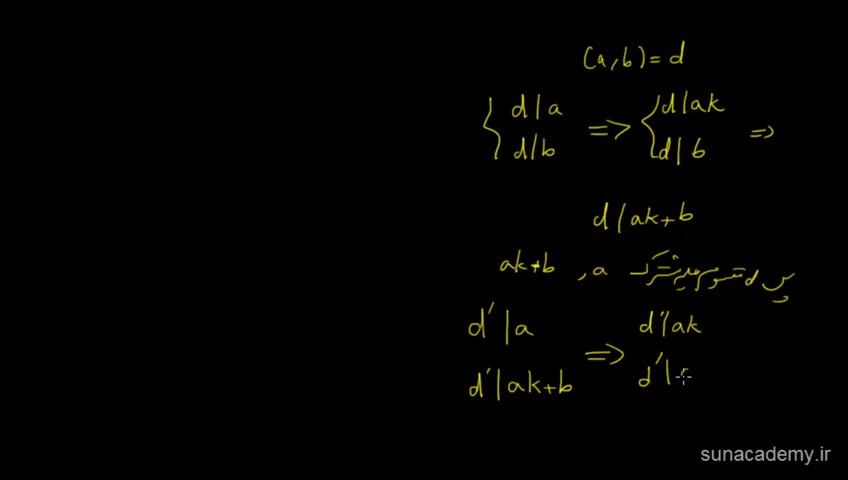 (a,b)=d
d|a => d|ak =>
d|b d|b
d|ak+b
پس d مقسوم علیه مشترک a , ak+b
d'|a => d'|ak
d'|ak+b d'|
sunacademy.ir